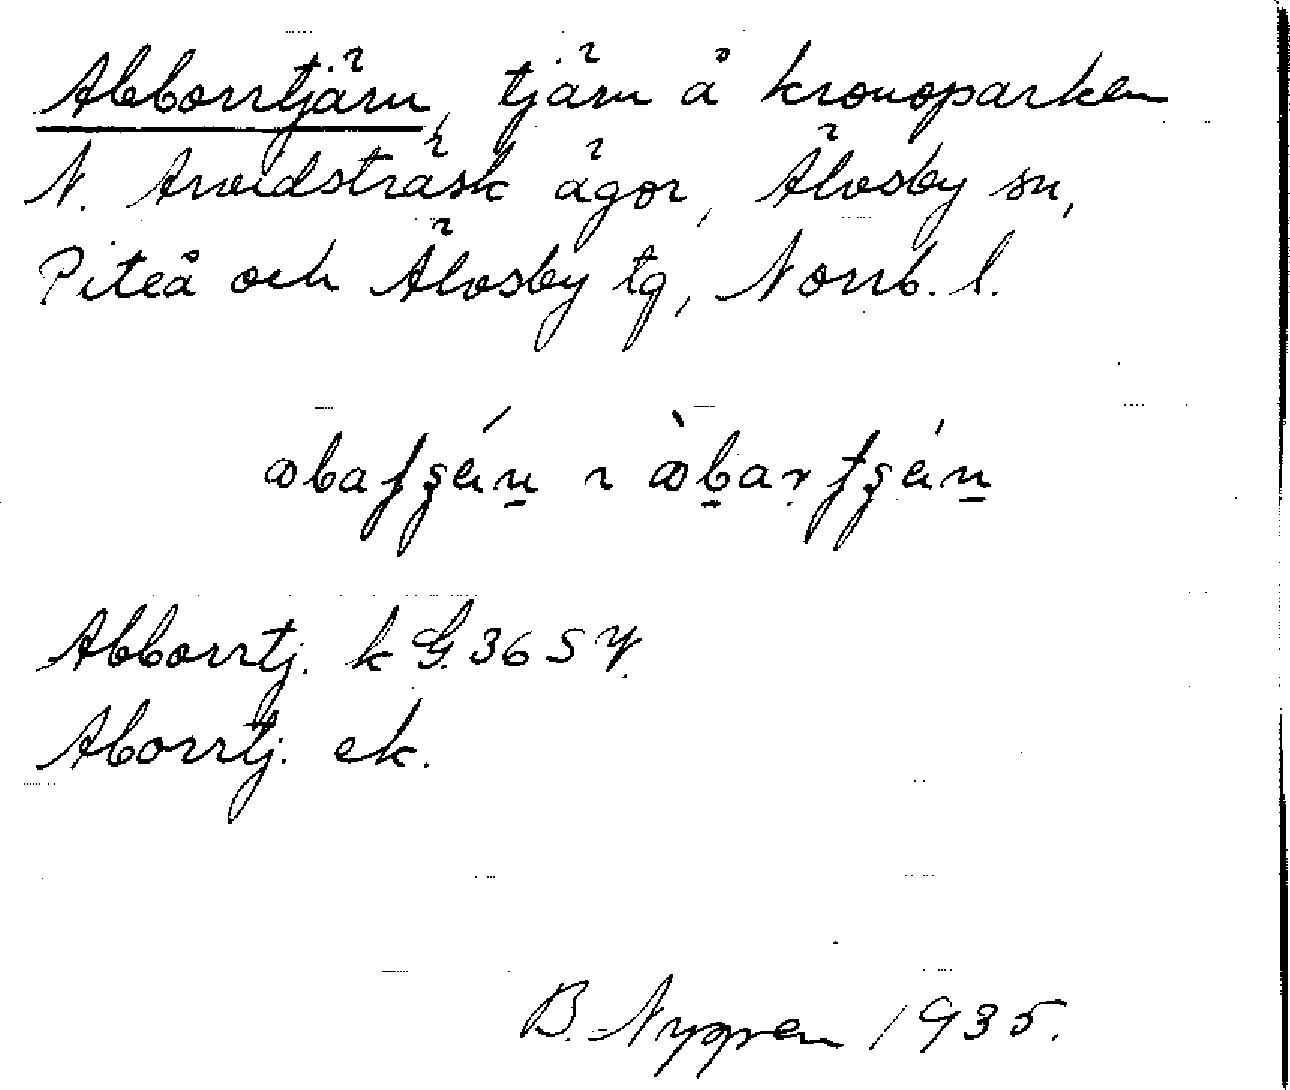 Abborrtjärn, tjärn å kronoparken
N. Arvidsträsk ägor, Älvsby sn,
Piteå och Älvsby tg, Norrb. l.
Abborrtj. k G. 36 S V.
Aborrtj. ek.
B. Nygren 1935.